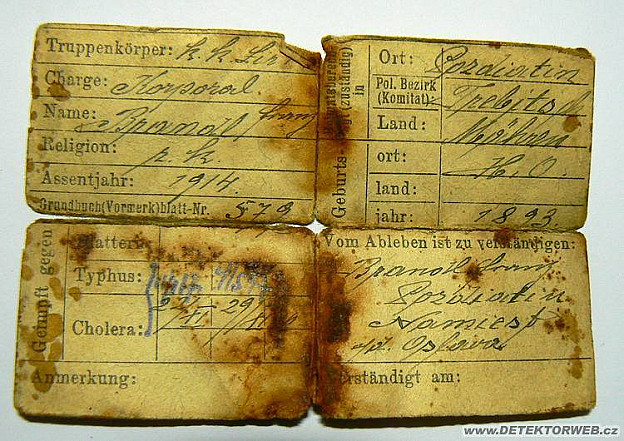 Truppenkörper: k. k. Lir
Charge: Korporal.
Name: Brandl Franz
Religion: r. k.
Assentjahr: 1914.
Grundbuch(Vormerk)blatt-Nr. 579
in
Geburts
Ort:
Pol. Bezirk
(Komitat): Trebitsch
Land: Mähren
ort: H. O.
land:
jahr: 1893.
Geimpft gegen
Blattern
Typhus:
Cholera:
Anmerkung:
Vom Ableben ist zu verständigen:
Brandl Franz
Namiest
a/d. Oslava
Verständigt am:
WWW.DETEKTORWEB.cz